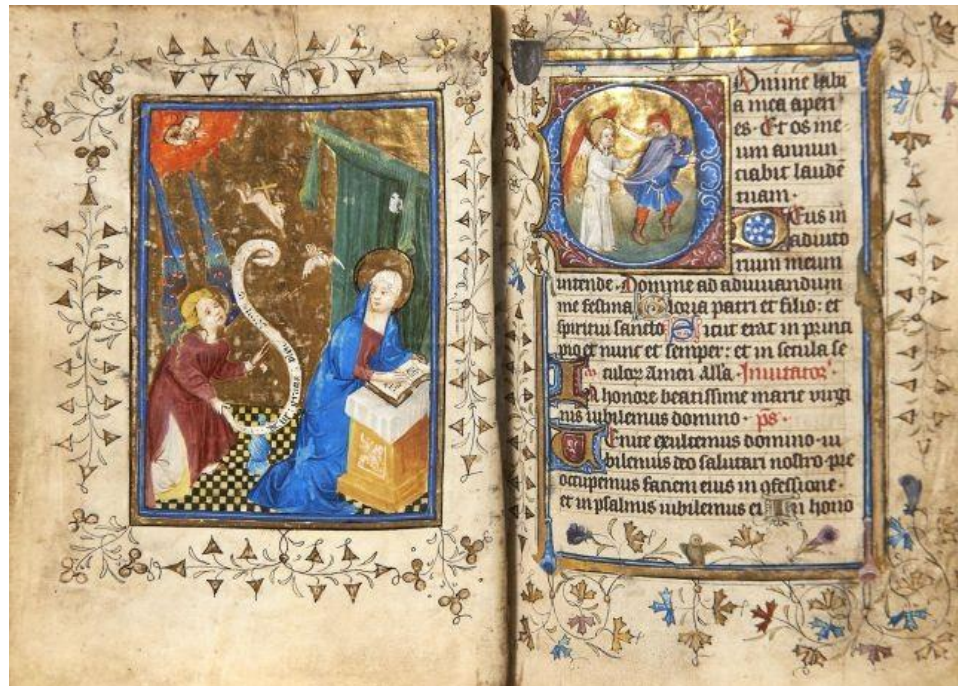 Domine labi
a mea aperi
es · Et os me
um annun
ciabit laudē
tuam ·
Deus in
adiuto
rium meum
intende · Domine ad adiuuandum
me festina Gloria patri et filio: et
spiritui sancto Sicut erat in princi
pio et nunc et semper: et in secula se
culoꝝ Amen Alla · Inuitator
In honore beatissime marie virgi
nis iubilemus domino · p̄s ·
Venite exultemus domino · iu
bilemus deo salutari nostro · pre
occupemus faciem eius in ꝯfessione ·
et in psalmis iubilemus ei In hono